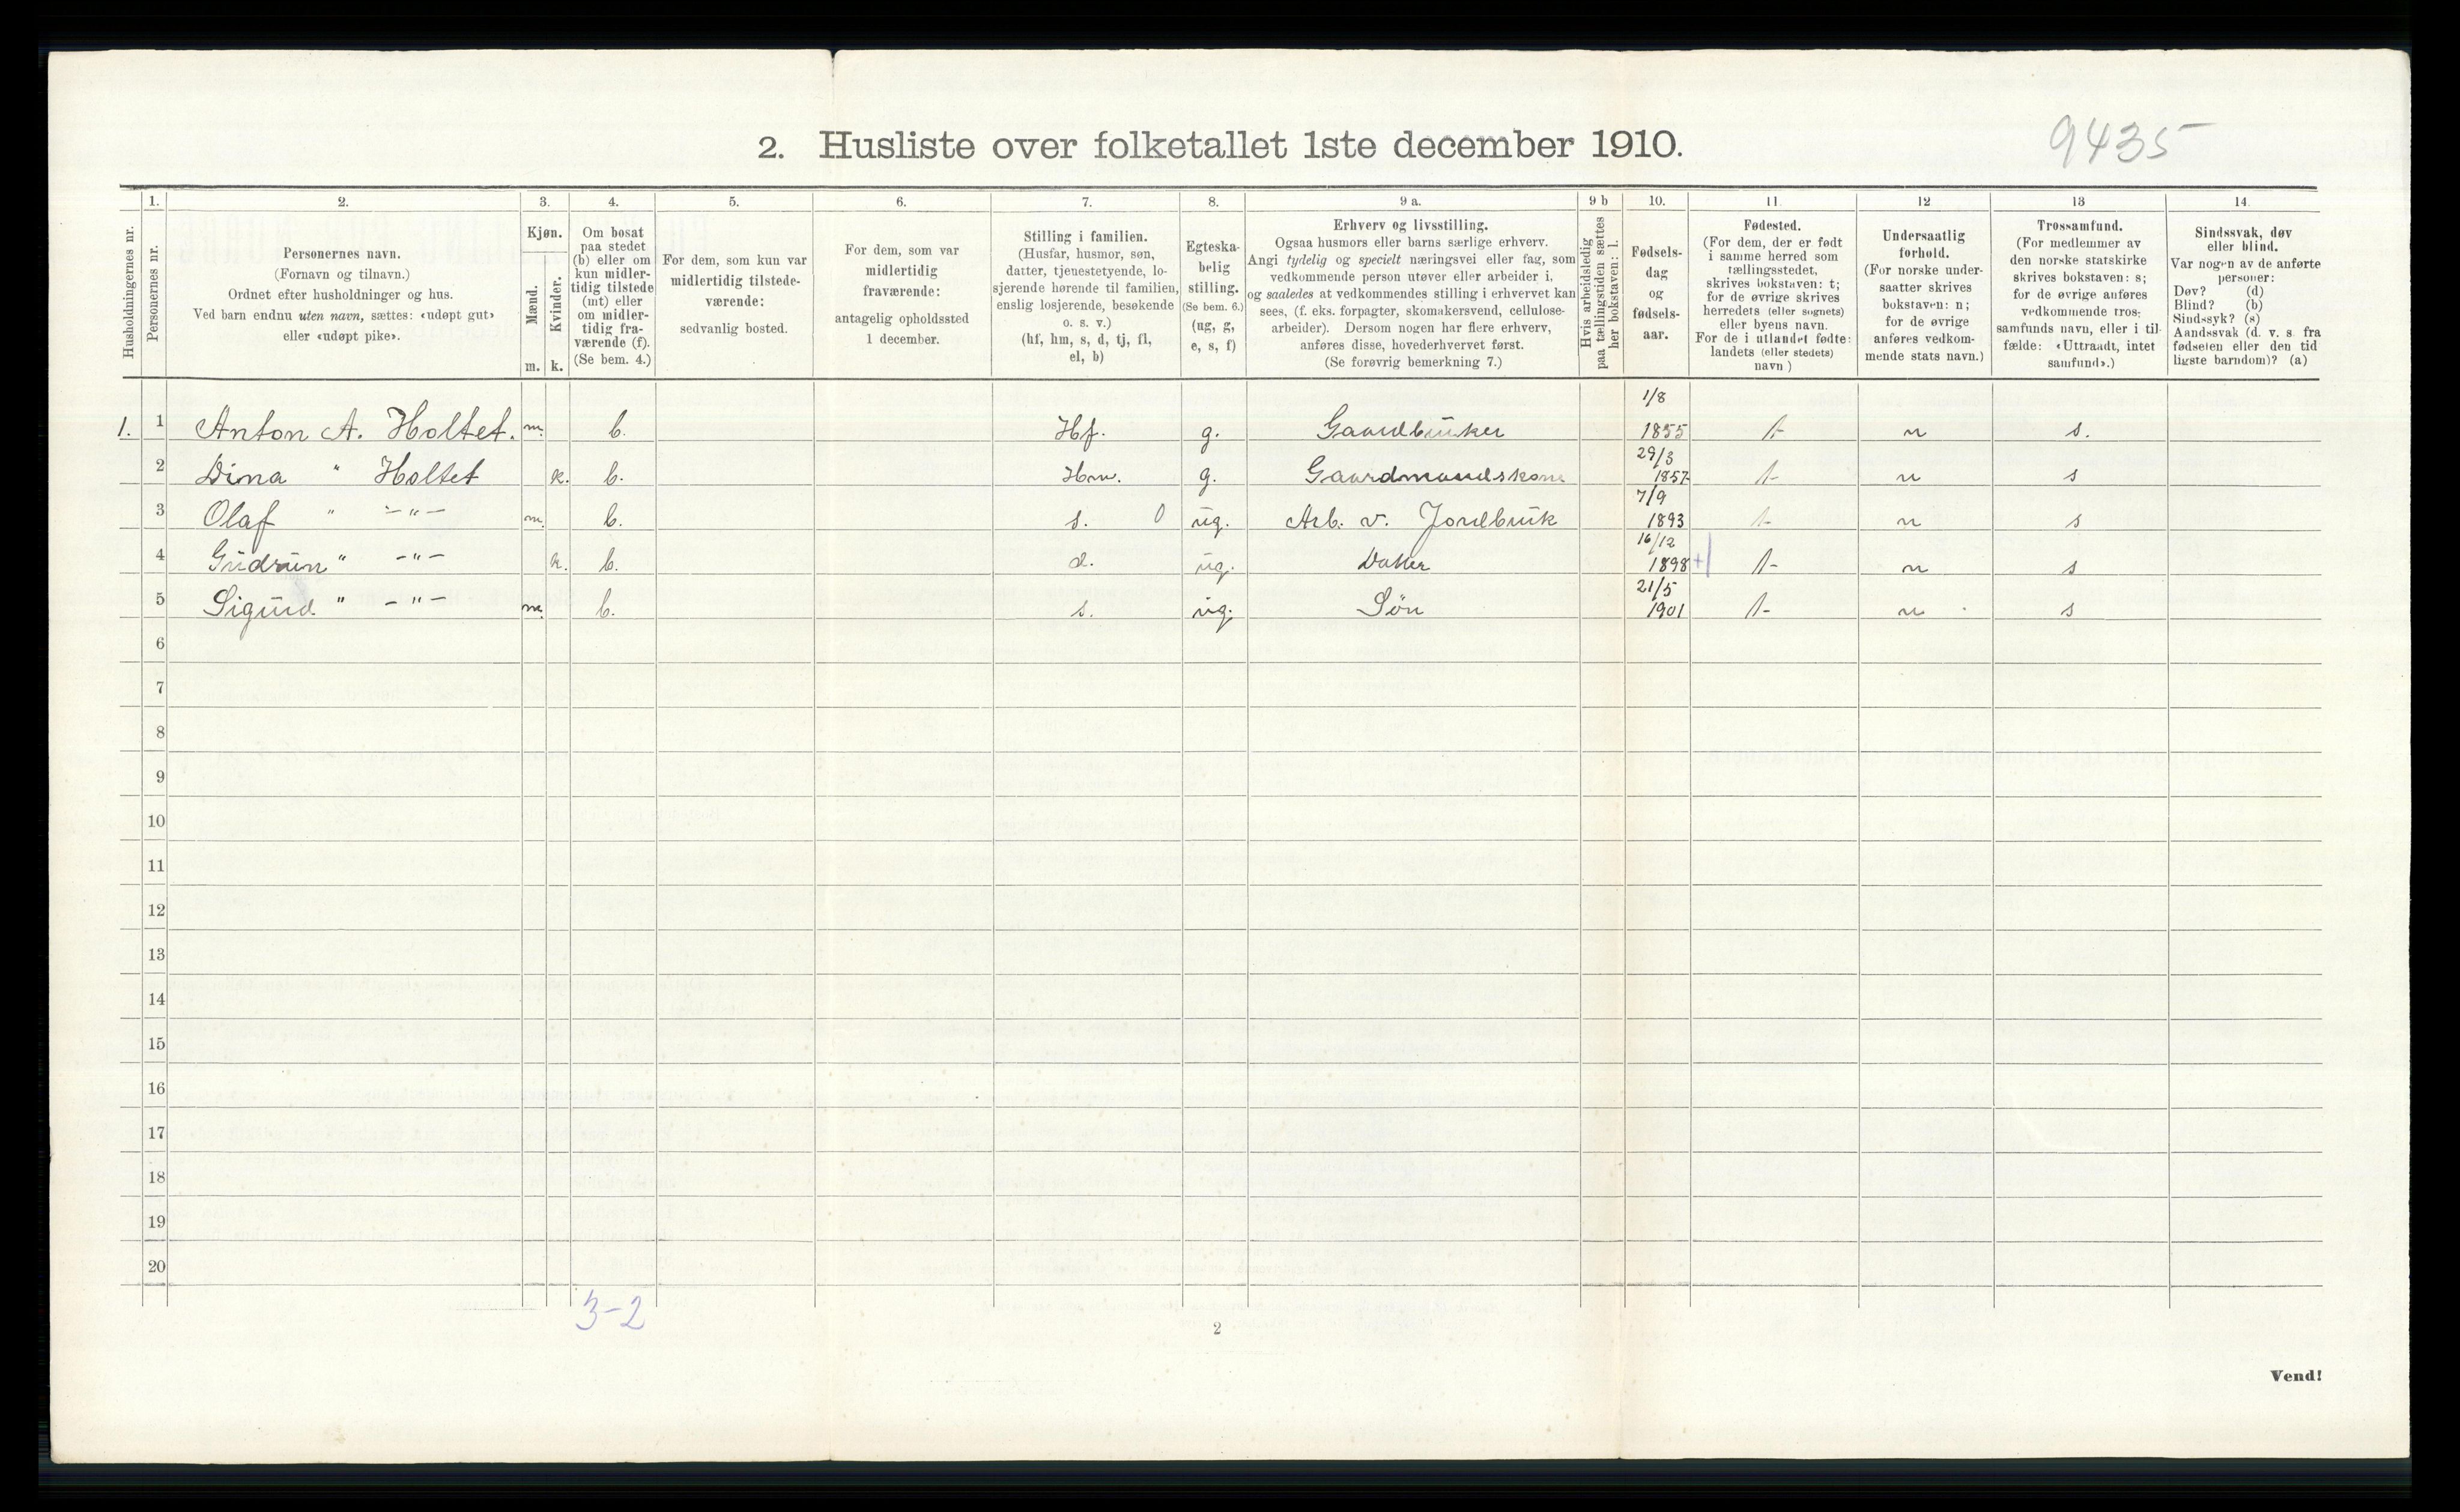 2. Husliste over folketallet 1ste december 1910.
9435
Husholdningernes nr.
1. Personernes nr.
2. Personernes navn.
(Fornavn og tilnavn.)
Ordnet efter husholdninger og hus.
Ved barn endnu uten navn, sættes: «udøpt gut»
eller «udøpt pike».
3. Kjøn.
Mænd. Kvinder.
m. k.
4. Om bosat
paa stedet
(b) eller om
kun midler-
tidig tilstede
(mt) eller
om midler-
tidig fra-
værende (f).
(Se bem. 4.)
5. For dem, som kun var
midlertidig tilstede-
værende:
sedvanlig bosted.
6. For dem, som var
midlertidig
fraværende:
antagelig opholdssted
1 december.
7. Stilling i familien.
(Husfar, husmor, søn,
datter, tjenestetyende, lo-
sjerende hørende til familien,
enslig losjerende, besøkende
o. s. v.)
(hf, hm, s, d, tj, fl,
el, b)
8. Egteska-
belig
stilling.
(Se bem. 6.)
(ug, g,
e, s, f)
9 a. Erhverv og livsstilling.
Ogsaa husmors eller barns særlige erhverv.
Angi tydelig og specielt næringsvei eller fag, som
vedkommende person utøver eller arbeider i,
og saaledes at vedkommendes stilling i erhvervet kan
sees, (f. eks. forpagter, skomakersvend, cellulose-
arbeider). Dersom nogen har flere erhverv,
anføres disse, hovederhvervet først.
(Se forøvrig bemerkning 7.)
9 b Hvis arbeidsledig
paa tællingstiden sættes
her bokstaven: l.
10. Fødsels-
dag
og
fødsels-
aar.
11. Fødested.
(For dem, der er født
i samme herred som
tællingsstedet,
skrives bokstaven: t;
for de øvrige skrives
herredets (eller sognets)
eller byens navn.
For de i utlandet fødte:
landets (eller stedets)
navn )
12 Undersaatlig
forhold.
(For norske under-
saatter skrives
bokstaven: n;
for de øvrige
anføres vedkom-
mende stats navn.)
13 Trossamfund.
(For medlemmer av
den norske statskirke
skrives bokstaven: s;
for de øvrige anføres
vedkommende tros-
samfunds navn, eller i til-
fælde: «Uttraadt, intet
samfund».)
14. Sindssvak, døv
eller blind.
Var nogen av de anførte
personer:
Døv? (d)
Blind? (b)
Sindssyk? (s)
Aandssvak (d. v. s. fra
fødselen eller den tid
ligste barndom)? (a)
1. 1 Anton A. Holtet. m. b. Hf. g. Gaardbruker 1/8 1855 t n s.
2 Dina " Holtet k. b. Hm. g. Gaardmandskone 29/3 1857 t n s
3 Olaf " -"- m. b. s. 0 ug. Arb. v. Jordbruk 7/9 1893 t n s
4 Gudrun " -"- k. b. d. ug. Datter 16/12 1898 + t n s
5 Sigurd " -"- m. b. s. ug. Søn 21/5 1901 t n s
6
7
8
9
10
11
12
13
14
15
16
17
18
19
20
3-2
2
Vend!